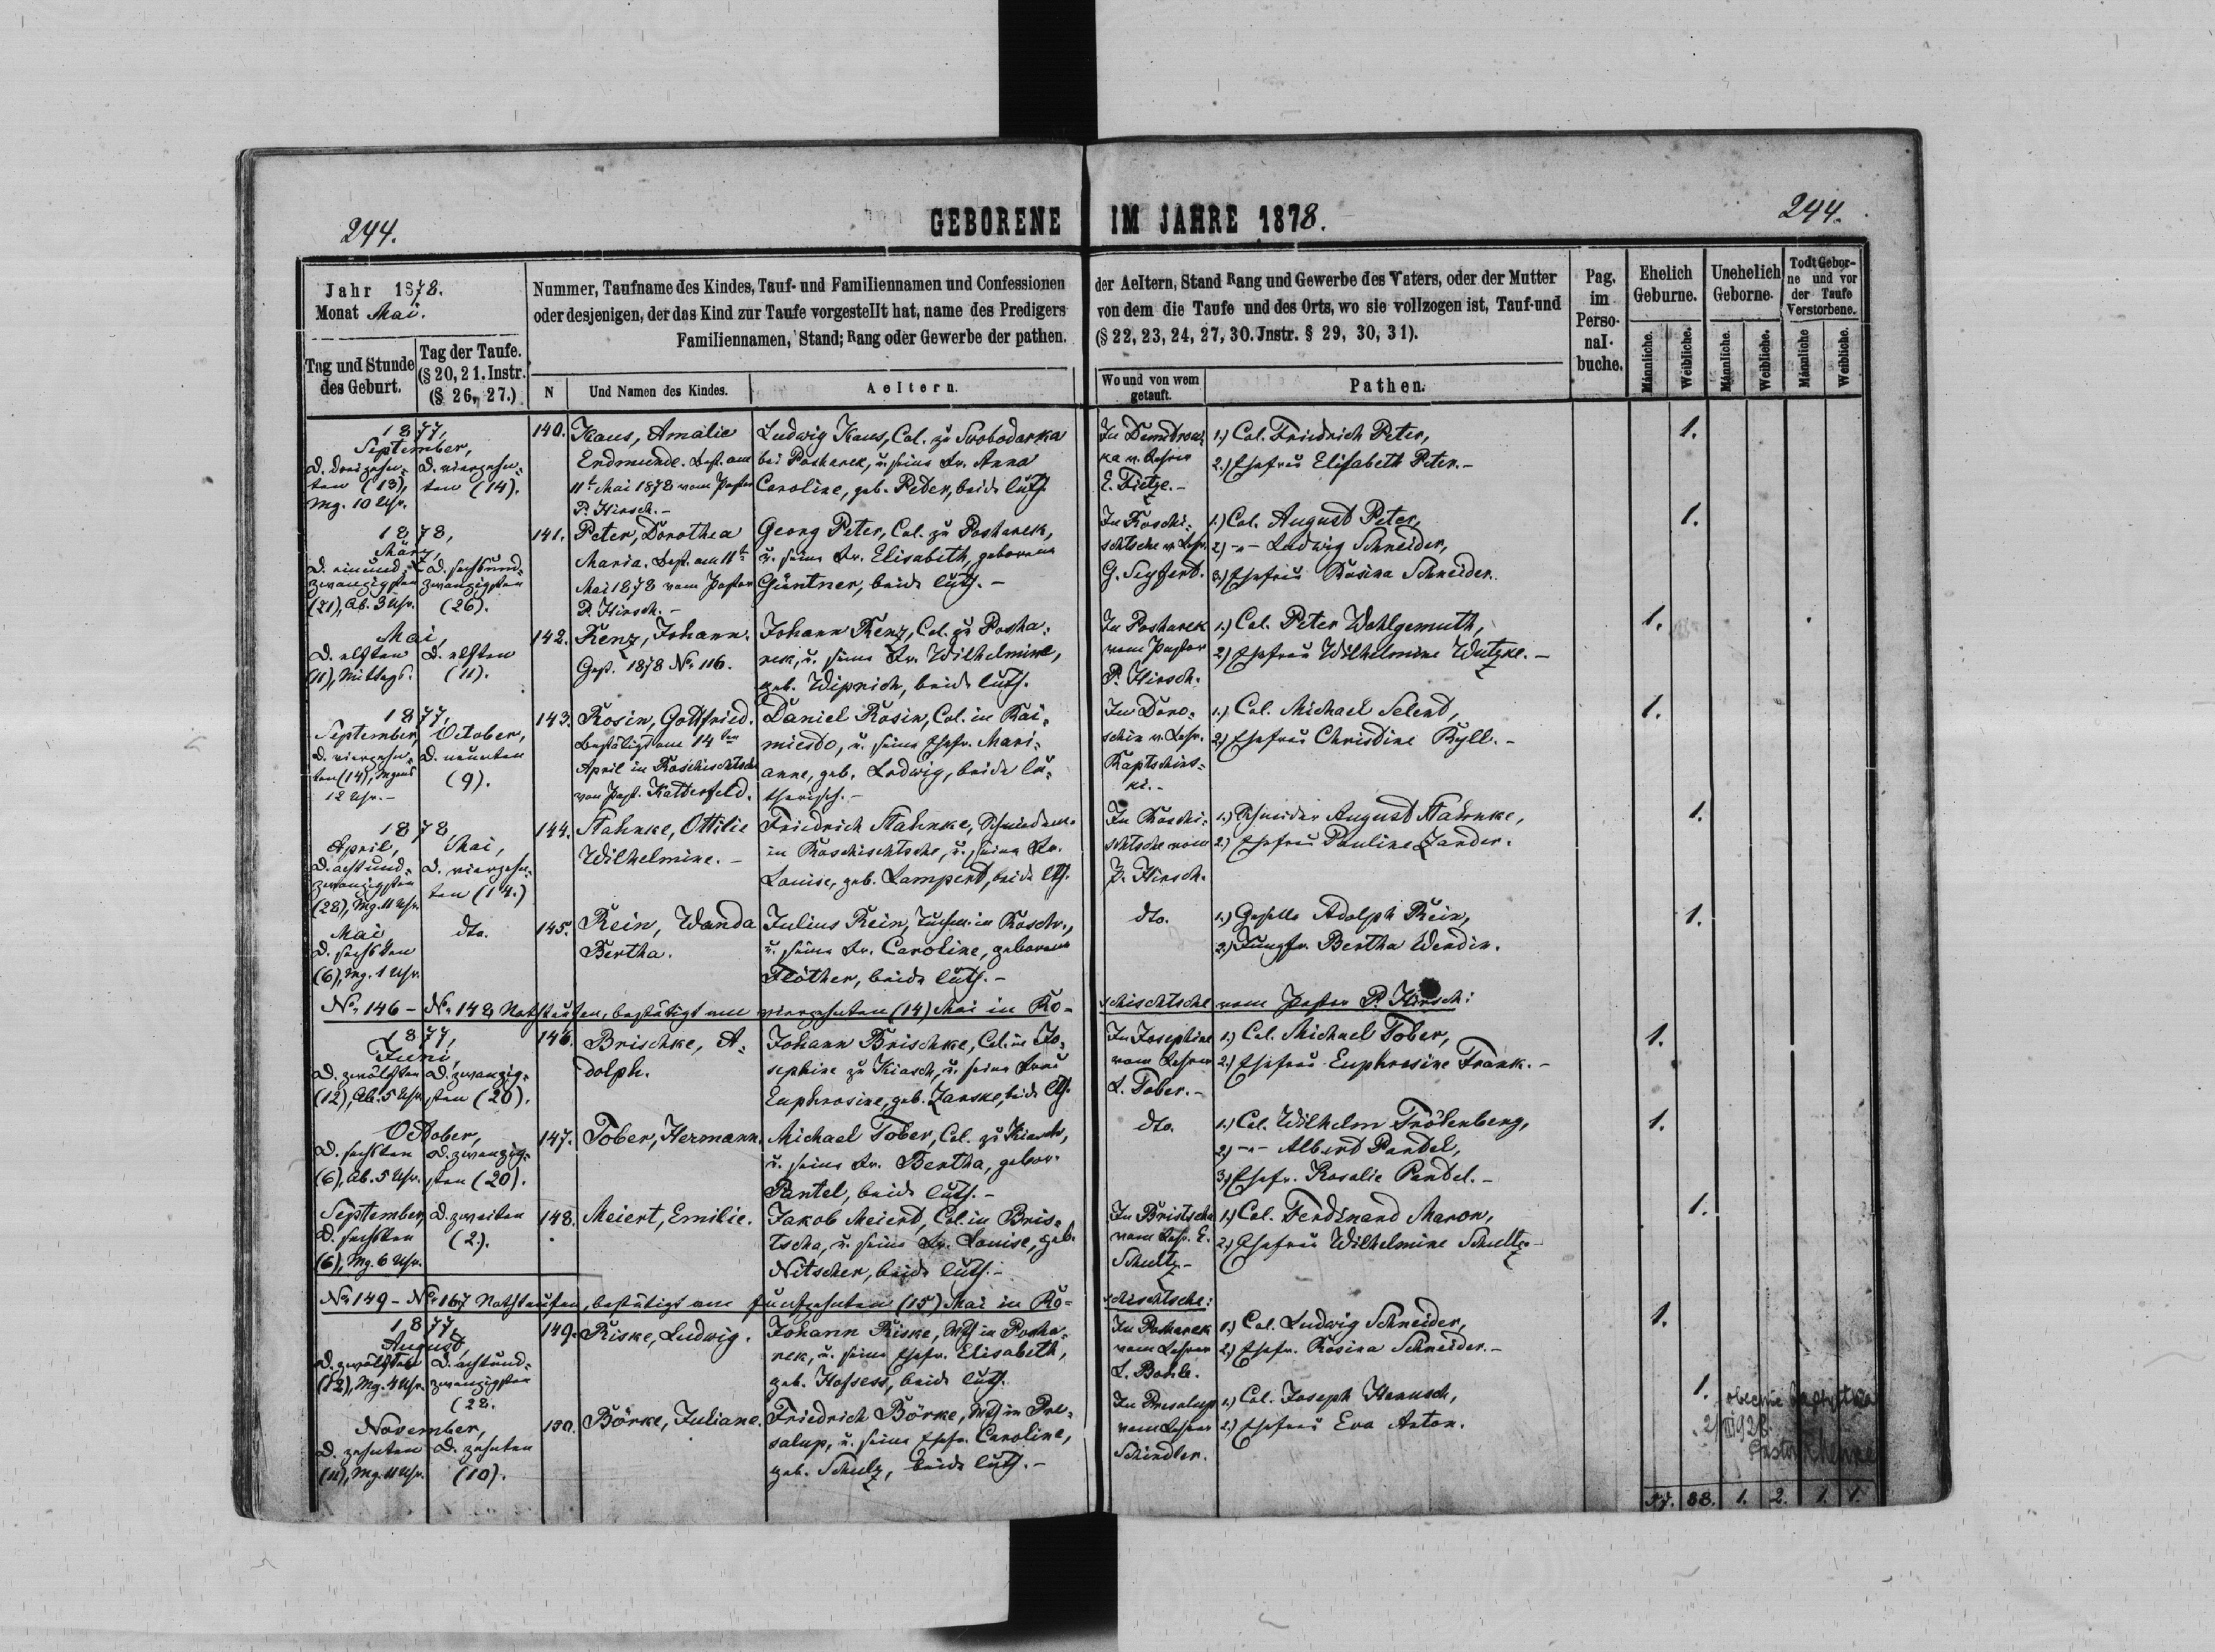 244.
GEBORENE IM JAHRE 1878.
244.
Jahr 1878.
Monat Mai.
Nummer, Taufname des Kindes, Tauf- und Familiennamen und Confessionen
oder desjenigen, der das Kind zur Taufe vorgestellt hat, name des Predigers
Familiennamen, Stand; Rang oder Gewerbe der pathen.
der Aeltern, Stand Rang und Gewerbe des Vaters, oder der Mutter
von dem die Taufe und des Orts, wo sie vollzogen ist, Tauf-und
(§ 22, 23, 24, 27, 30. Jnstr. § 29, 30, 31).
Pag.
im
Perso-
nal-
buche.
Ehelich
Geburne.
Unehelich
Geborne.
Todt Gebor-
ne und vor
der Taufe
Verstorbene.
Männliche.
Weibliche.
Männliche.
Weibliche.
Männliche
Weibliche.
Tag und Stunde
des Geburt.
Tag der Taufe.
(§ 20, 21. Instr.
(§ 26, 27.)
N
Und Namen des Kindes.
Aeltern.
Wo und von wem
getauft.
Pathen.
1877,
September,
D. dreizehn-
ten (13),
Mg. 10 Uhr.
D. vierzehn-
ten (14).
140.
Kaus, Amalie
Erdmunde. Best. am
11t Mai 1878 vom Pastor
P. Hirsch.-
Ludwig Kaus, Col. zu Svobodarka
bei Posharek, u. seine Fr. Anna
Caroline, geb. Peder, beide luth.
In Demidrow-
ka v. Lehrer
E. Fietze.-
1.) Col. Friedrich Peter,
2.) Ehefrau Elisabeth Peter.-
1.
1878,
März,
D. einund-
zwanzigsten
(21), Ab. 3 Uhr.
D. sechsund-
zwanzigsten
(26).
141.
Peter, Dorothea
Maria. Best. am 11t
Mai 1878 vom Pastor
P. Hirsch.-
Georg Peter, Col. zu Posharek,
u. seine Fr. Elisabeth, geborene
Güntner, beide luth.-
In Koschi-
schtsche v. Lehr.
G. Seyferd.
1.) Col. August Peter,
2) -"- Ludwig Schneider,
3.) Ehefrau Rosina Schneider.
1.
Mai,
D. elften
(11), Mittags.
D. elften
(11).
142.
Renz, Johann.
Gest. 1878 No. 116.
Johann Renz, Col. zu Posha-
rek, u. seine Fr. Wilhelmine,
geb. Wiprich, beide luth.
In Posharek
vom Pastor
P. Hirsch.
1.) Col. Peter Wohlgemuth,
2.) Ehefrau Wilhelmine Wutzke.-
1.
1877,
September,
D. vierzehn-
ten (14), Mgens
12 Uhr.-
October,
D. neunten
(9).
143.
Rosin, Gottfried.
Bestätigt am 14ten
April in Roschischtsche
von Past. Katterfeld.
Daniel Rosin, Col. in Kai-
miesdo, u. seine Ehefr. Mari-
anne, geb. Ludwig, beide lu-
therisch.-
In Doro-
schin v. Lehr.
Kaptschins-
ki.-
1.) Col. Michael Selent,
2.) Ehefrau Christine Ryll.-
1.
1878,
April,
D. achtund-
zwanzigsten
(28), Mg. 11 Uhr.
Mai,
D. vierzehn-
ten (14.)
144.
Stahnke, Ottilie
Wilhelmine.-
Friedrich Stahnke, Schneiderm.
in Roschischtsche, u. seine Fr.
Louise, geb. Lampert, beide lth.
In Roschi-
schtsche vom
P. Hirsch.
1.) Schneider August Stahnke,
2.) Ehefrau Pauline Zander.
1.
Mai,
D. sechsten
(6), Mg. 1 Uhr.
dto.
145.
Rein, Wanda
Bertha.
Julius Rein, Tuchm. in Roschi.,
u. seine Fr. Caroline, geborene
Flöther, beide luth.-
dto.
1.) Geselle Adolph Rein,
2.) Jungfr. Bertha Werdin.
1.
No. 146 - No. 148 Nothtaufen, bestätigt am vierzehnten (14) Mai in Ro-
schischtsche vom Pastor P. Hirsch:
1877,
Juni,
D. zwölften
(12), Ab. 5 Uhr.
D. zwanzig-
sten (20).
146.
Brischke, A-
dolph.
Johann Brischke, Col. in Jo-
sephine zu Kiasch, u. seine Frau
Euphrosine, geb. Zarske, beide lth.
In Josephine
vom Lehrer
L. Tober.-
1.) Col. Michael Tober,
2.) Ehefrau Euphrosine Frank.-
1.
October,
D. sechsten
(6), Ab. 5 Uhr.
D. zwanzig-
sten (20).
147.
Tober, Hermann.
Michael Tober, Col. zu Kiasch,
u. seine Fr. Bertha, gebor.
Pantel, beide luth.-
dto.
1.) Col. Wilhelm Trötenberg,
2.) -"- Alberd Pandel,
3.) Ehefr. Rosalie Pandel.-
1.
September,
D. sechsten
(6), Mg. 6 Uhr.
D. zweiten
(2.).
148.
Meiert, Emilie.
Jakob Meierd, Col. in Bris-
tscha, u. seine Fr. Louise, geb.
Nitscher, beide luth.-
In Bristscha
vom Lehr. E.
Schultz.-
1.) Col. Ferdinand Maron,
2.) Ehefrau Wilhelmine Schultz.-
1.
No. 149 - No. 167 Nothtaufen, bestätigt am fünfzehnten (15) Mai in Ro-
schischtsche:
1877,
August,
D. zwölften
(12), Mg. 4 Uhr.
D. achtund-
zwanzigsten
(28.
149.
Riske, Ludwig.
Johann Riske, Wth in Posha-
rek, u. seine Ehefr. Elisabeth,
geb. Hofsess, beide luth.
In Posharek
vom Lehrer
L. Bohle.
1.) Col. Ludwig Schneider,
2.) Ehefr. Rosina Schneider.-
1.
November,
D. zehnten
(10), Mg. 11 Uhr.
D. zehnten
(10).
150.
Börke, Juliane.
Friedrich Börke, Wth in Pre-
salup, u. seine Ehefr. Caroline,
geb. Schulz, beide luth.-
In Presalup
vom Lehrer
Schindler.
1.) Col. Joseph Henusch,
2.) Ehefrau Eva Anton.
1.
obecnie baptystka
2/III 928.
Pastor
57. 88. 1. 2. 1. 1.